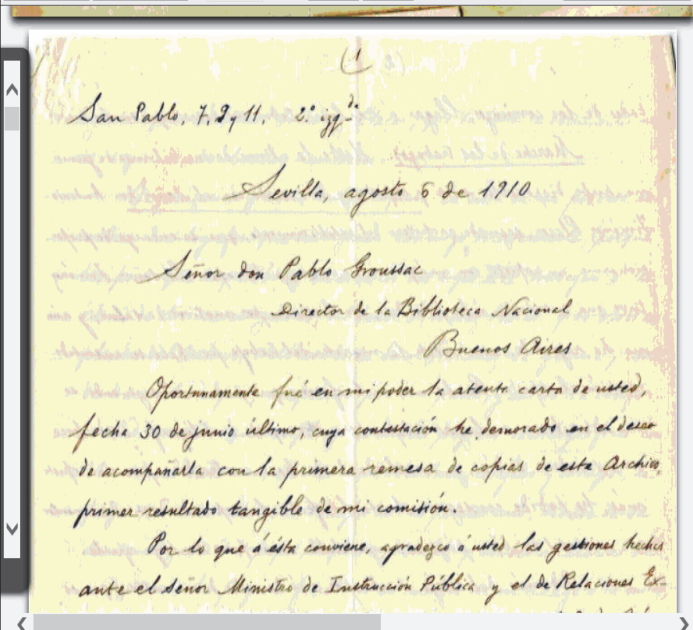 (1
San Pablo, 7, 9 y 11, 2º izqda
Sevilla, agosto 6 de 1910
Señor don Pablo Groussac
Director de la Biblioteca Nacional
Buenos Aires
Oportunamente fué en mi poder la atenta carta de usted,
fecha 30 de junio último, cuya contestación he demorado en el deseo
de acompañarla con la primera remesa de copias de este Archivo,
primer resultado tangible de mi comisión.
Por lo que á ésta conviene, agradezco á usted las gestiones hechas
ante el señor Ministro de Instrucción Pública y el de Relaciones Ex-